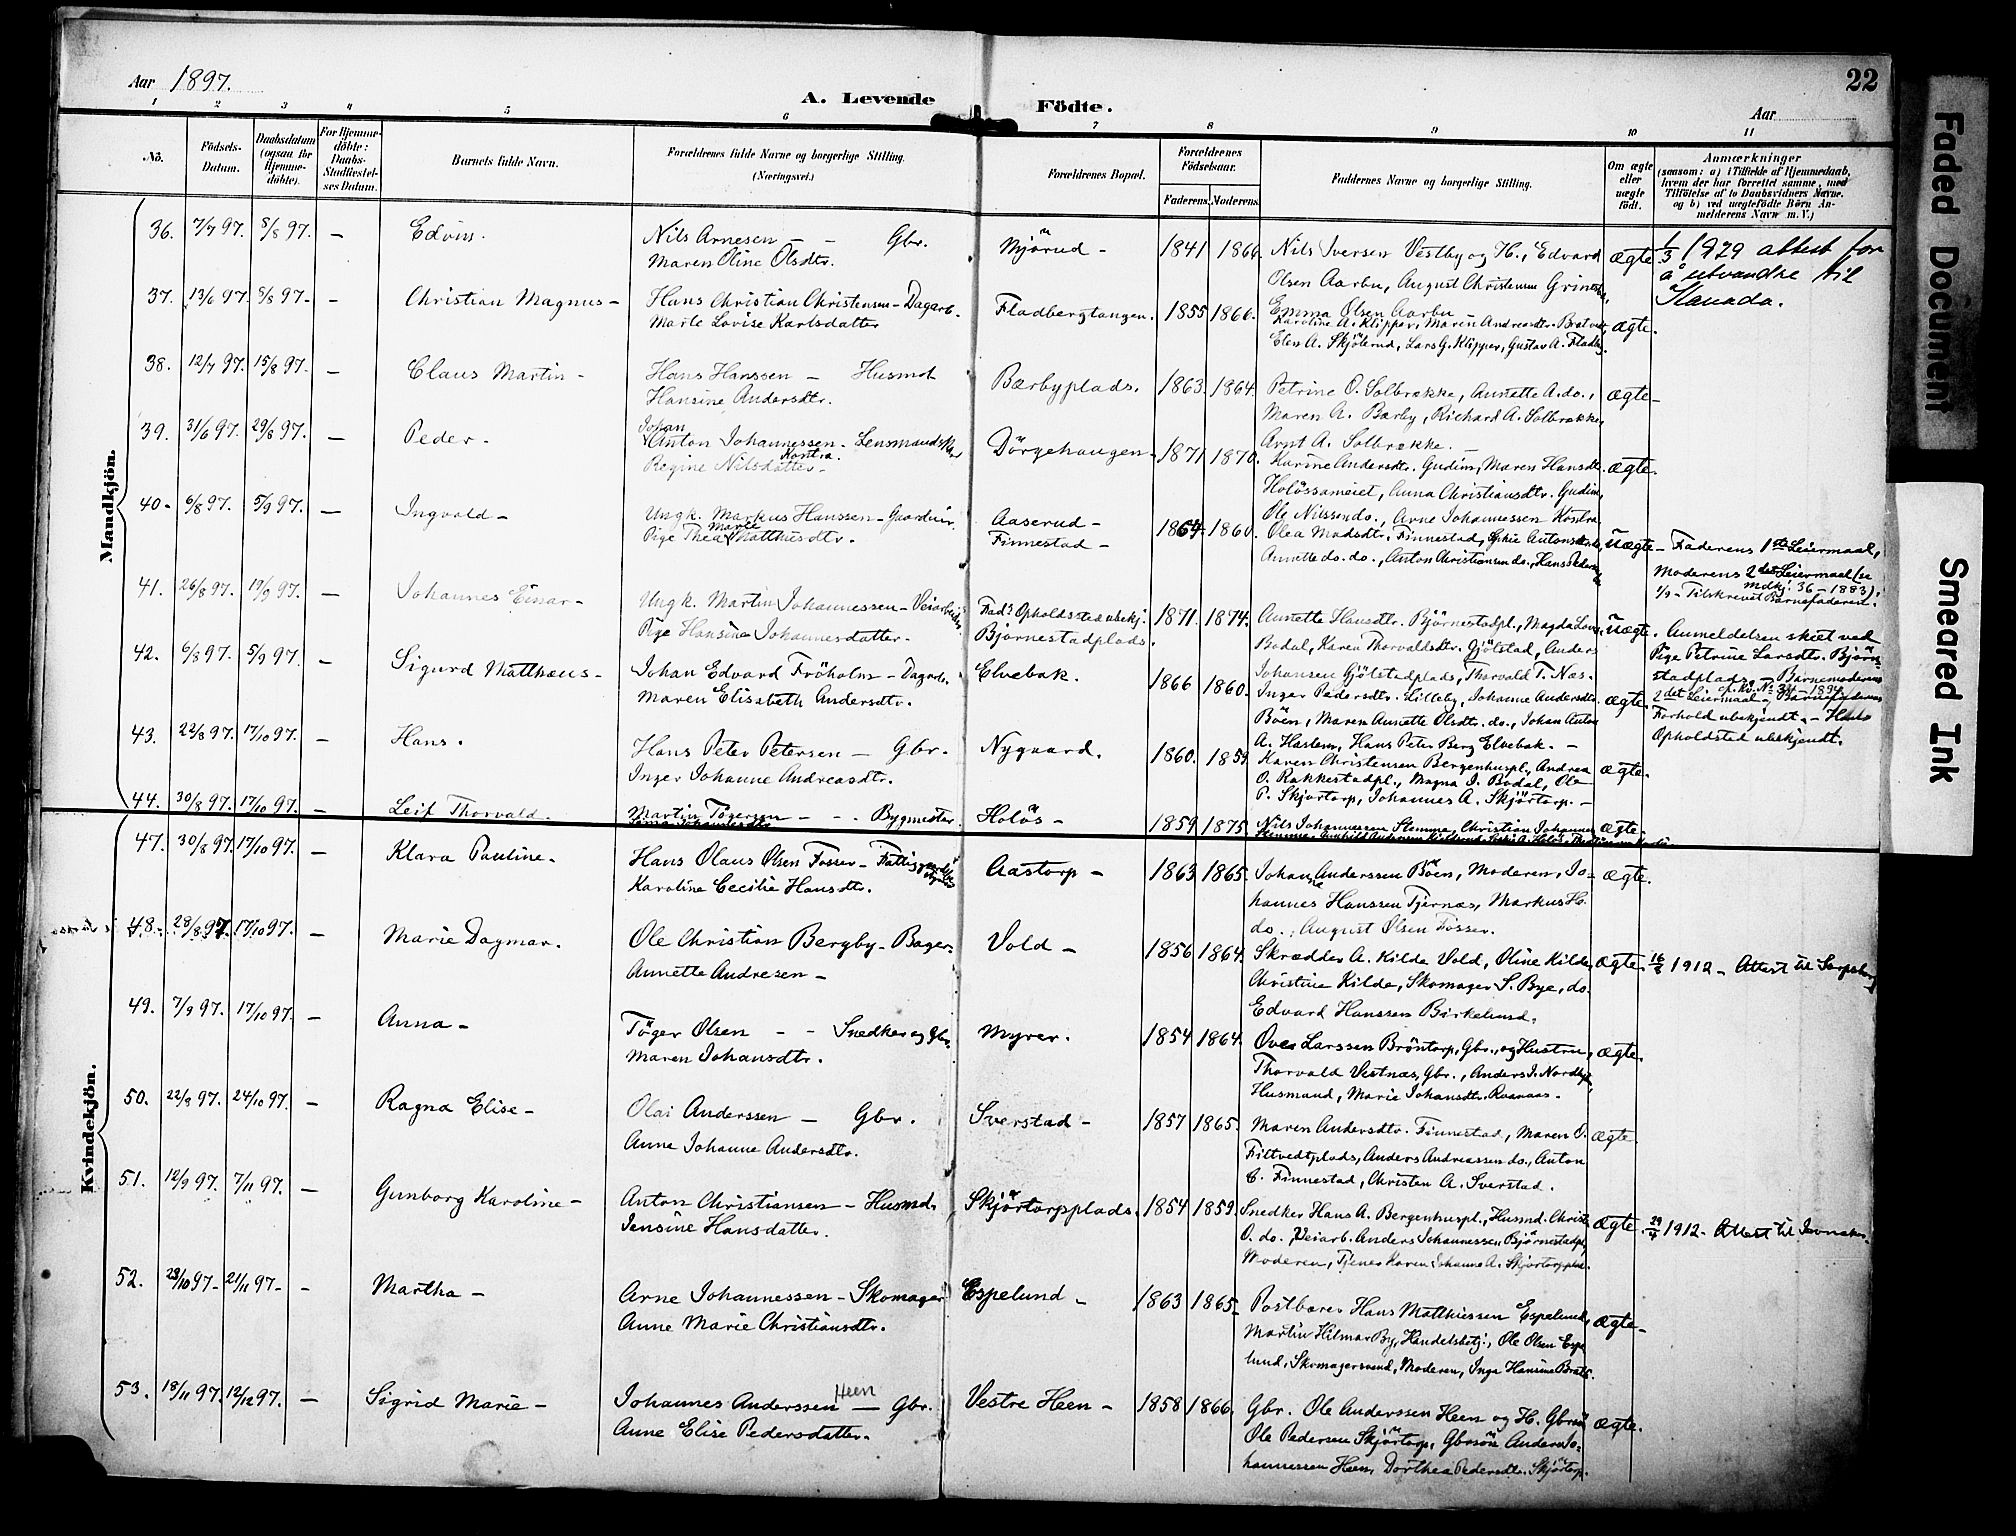 Aar 1897.
A. Levende Födte.
22
Aar
1 2 3 4 5 6 7 8 9 10 11
No.
Födsels-Datum.
Daabsdatum (ogsaa for Hjemme-döbte).
For Hjemme-döbte: Daabs-Stadfæstelses Datum.
Barnets fulde Navn.
Forældrenes fulde Navne og borgerlige Stilling. (Næringsvei.)
Forældrenes Bopæl.
Forældrenes Födselsaar.
Faderens. Moderens.
Faddernes Navne og borgerlige Stilling.
Om ægte eller uægte födt.
Anmærkninger (saasom: a) i Tilfælde af Hjemmedaab, hvem der har forrettet samme, med Tilföielse af to Daabsvidners Navne. og b) ved uægtefödte Börn Anmelderens Navn m. V.)
Mandkjön.
36. 7/7 97. 8/8 97. – Edvin. Nils Arnesen – – Gbr. Mjörud – 1841 1866 Nils Iversen Vestby og H., Edvard ægte 1/3 1929 attest for
Maren Oline Olsdtr. Olsen Aarbu, August Christensen å utvandre til
37. 13/6 97 8/8 97– – Christian Magnus – Hans Christian Christensen – Dagarb. Fladbergtangen. 1855 1866. Emma Olsen Aarbu ægte. Kanada.
Marte Lovise Karlsdatter Karoline A. Klipper, Maren Andreasdtr.
Elen A. Skjölerud, Lars G. Klipper, Gustav A.
38. 12/7 97. 15/8 97. – Claus Martin – Hans Hanssen – Husmd. Bærbyplads. 1863. 1864. Petrine O. Solbrække, Annette A. do., ægte –
Hansine Andersdtr. Maren A. Bærby, Richard A. Solbrække,
39. 31/6 97. 29/8 97. – Peder – Johan Anton Johannessen – Dörgehaugen – 1871 1870. Arnt A. Solbrække. – ægte.
Regine Nilsdatter – Kontra. Karine Andersdtr. Gudim, Maren Hansdtr.
Holössameiet, Anna Christiansdtr. Gudim,
40 – 6/8 97. 5/9 97. – Ingvald – Ungk. Markus Hanssen – Gaardeier. Aaserud – 1864. 1860. Ole Nilssen do., Arne Johannessen Kontra uægte – Faderens 1ste Leiermaal,
Pige Thea Marie Matthisdtr. Finnestad – Olea Madsdtr. Finnestad, Moderens 2det Leiermaal (se
Annette do. do., Anton Christiansen do., Hans Mdkj. 36 – 1883).
– Tilskrevet Barnefaderen.
41. 26/8 97. 19/9 97. – Johannes Einar – Ungk. Martin Johannessen – Veiarbeider Fad.s Opholdssted ubekj. 1871. 1874. Annette Hansdtr. Björnestadpl., Magda uægte. Anmeldelsen skeet ved
Pige Hansine Johannesdatter. Björnestadplads. Bodal, Karen Thorvaldsdtr. Gjölstad, Anders Pige Petrine Larsdtr. Björne-
42. 6/8 97. 5/9 97. – Sigurd Matthæus – Johan Edvard Fröholm – Dagarb. Elvebak. 1866 1860. Johansen Gjölstadplads, Thorvald T. Næs. ægte. stadplads – Barnemoderens
Maren Elisabeth Andersdtr. Inger Pedersdtr. Lilleby, Johanne Andersdtr. 2det Leiermaal, Barnefaderens
Böen, Maren Annette Olsdtr. do., Johan Anton Forhold ubekjendt. – Hans
43. 22/8 97. 17/10 97. – Hans. Hans Peter Petersen – Gbr. Nygaard. 1860. 1859. A. Haslem, Hans Peter Berg Elvebak. – ægte. Opholdsted ubekjendt.
Inger Johanne Andreasdtr. Karen Christensen Bergenhuspl., Andrea
O. Rakkestadpl., Magna J. Bodal, Ole
P. Skjörtorp, Johannes A. Skjörtorp. –
44. 30/8 97. 17/10 97. – Leif Thorvald. Martin Tögersen – – – Bygmester. Holös – 1859 1875. Nils Johannessen Stemme, Christian Johannes ægte
Kvindekjön.
47. 30/8 97. 17/10 97. – Klara Pauline – Hans Olaus Olsen Fosser – Aastorp – 1863 1865. Johanne Anderssen Böen, Moderen, Jo- ægte.
Karoline Cecilie Hansdtr. hannes Hanssen Tjernæs, Markus H.
do., August Olsen Fosser.
48. 28/8 97. 17/10 97. – Marie Dagmar. Ole Christian Bergby – Bager. Vold – 1856 1864. Skrædder A. Kilde Vold, Oline Kilde, ægte. 16/2 1912 – Attest til Sarpsborg
Annette Andresen – Christine Kilde, Skomager S. Bye, do.
Edvard Hanssen Birkelund.
49. 7/9 97. 17/10 97. – Anna – Töger Olsen – – Snedker og Gbr. Myrer. 1854 1864. Over Larssen Bröntorp, Gbr., og Hustru, ægte.
Maren Johansdtr. Thorvald Vestnæs, Gbr., Anders J. Nordby,
Husmand, Marie Johansdtr.
50. 22/8 97. 24/10 97. – Ragna Elise – Olai Anderssen – Gbr. Sverstad – 1857 1865. Maren Andersdtr. Finnestad, Maren O. ægte.
Anne Johanne Andersdtr. Fittvedtplads, Anders Andreassen do., Anton
C. Finnestad, Christen A. Sverstad.
51. 12/9 97. 7/11 97. – Gunborg Karoline – Anton Christiansen – Husmd. Skjörtorpplads. 1854 1859. Snedker Hans A. Bergenhuspl., Husmd. Christ. ægte. 29/4 1912. Attest til
Jensine Hansdatter. O. do., Veiarb. Anders Johannessen Björnestadpl.,
Moderen, Tjener Karen Johanne A. Skjörtorpplad.
52. 23/10 97 – 21/11 97 – – Martha – Arne Johannessen – Skomager Espelund – 1863 1865. Postbærer Hans Matthiessen Espelund, ægte –
Anne Marie Christiansdtr. Martin Hilmar By, Handelsbetj., Ole Olsen Espe-
lund, Skomagersvend, Moderen, Inga Hansine
53. 18/11 97. 12/12 97. – Sigrid Marie – Johannes Anderssen Heen – Gbr. Vestre Heen – 1858 1866. Gbr. Ole Anderssen Heen og H. ægte.
Anne Elise Pedersdatter. Ole Pedersen Skjörtorp, Gbrsön Anders Jo-
hannessen Heen, Dorthea Pedersdtr. Skjörtorp.
Faded Document
Smeared Ink